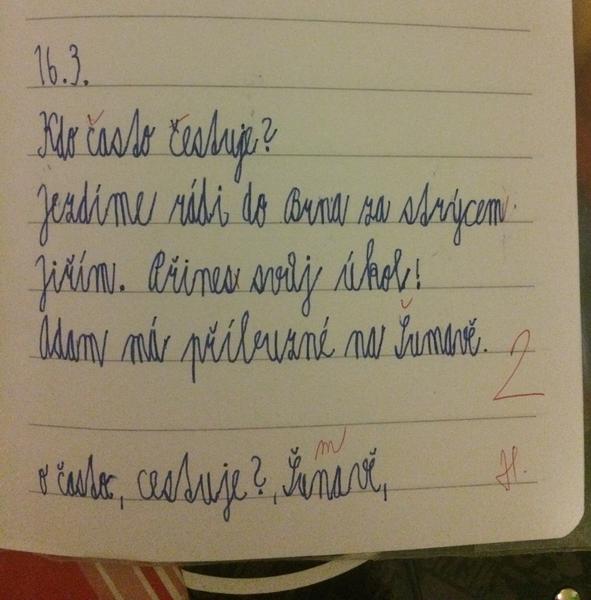 16.3.
Kdo často čestuje?
Jezdíme rádi do Brna za strýcem
Jiřím. Přines svůj úkol!
Adam má příbuzné na Šumavě.
2
m
o často, cestuje?, Šunavě,
H.